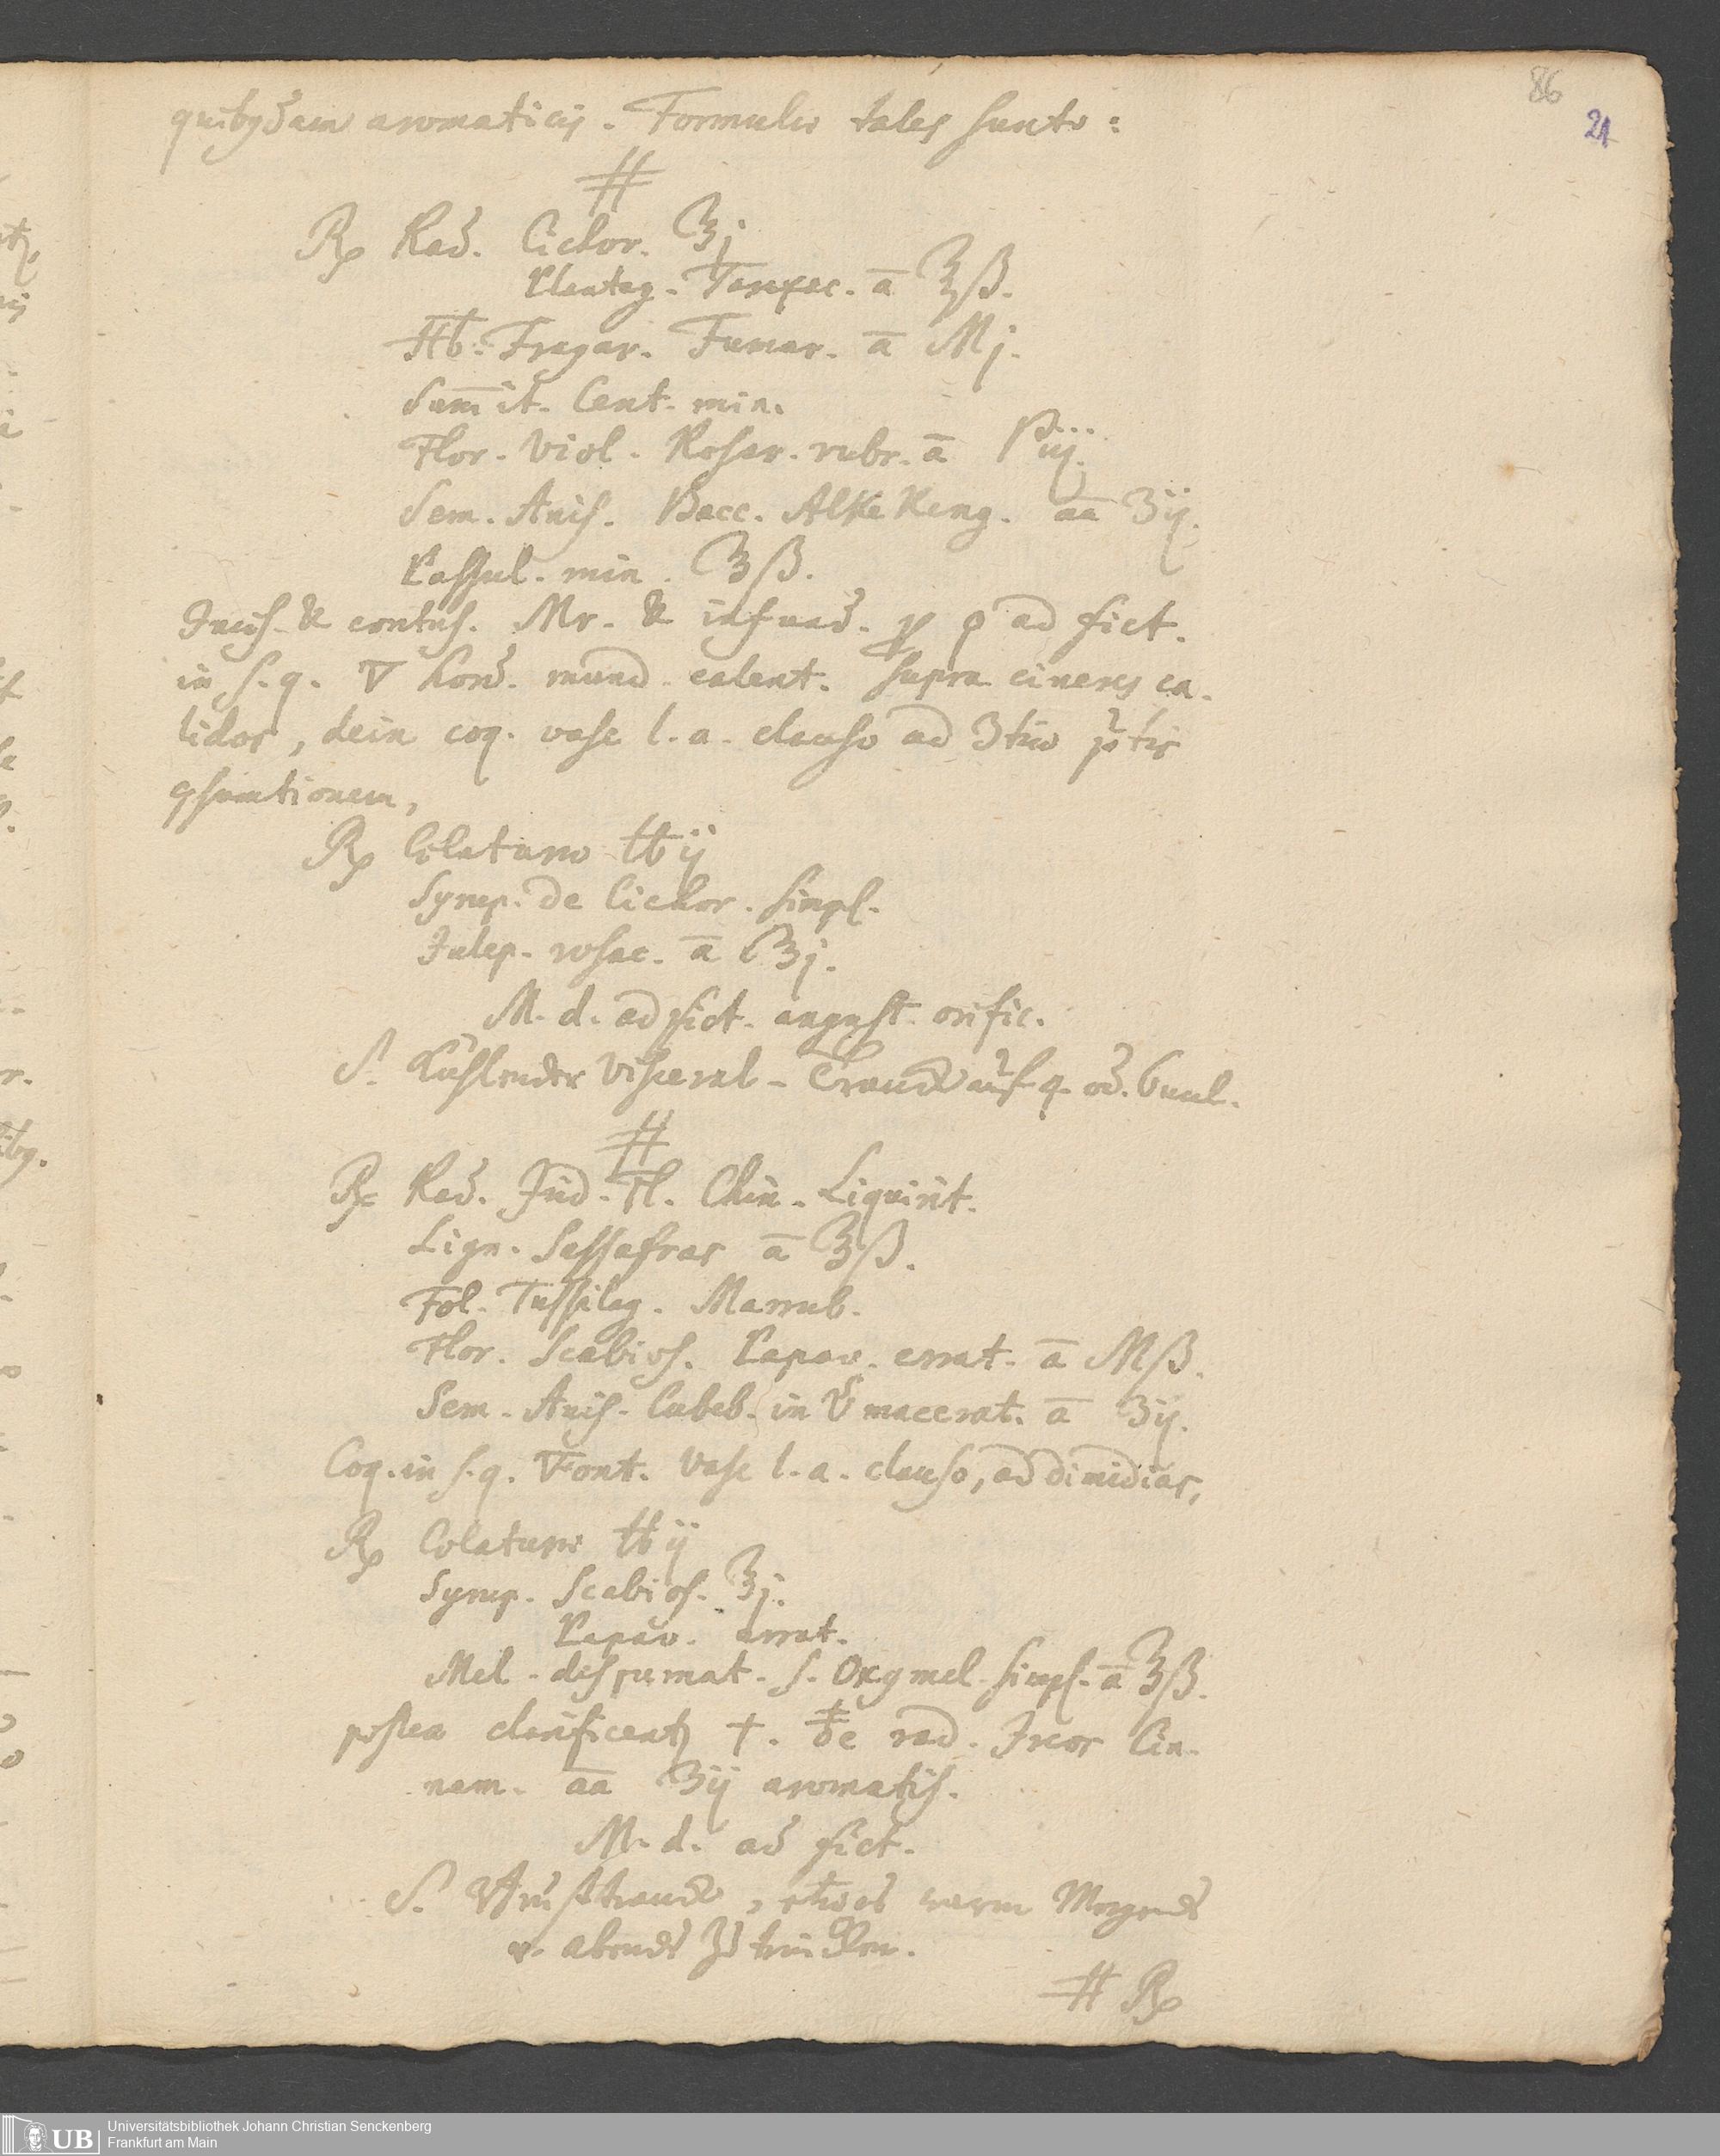 86
21
quibꝰdam aromaticis. Formulæ tales sunto:
#
℞ Rad. Cichor. ℥j
Plantag. Taraxac. a̅ ℥ß.
Hb. Fragar. Fumar. a̅ Mj.
Sum̅it. Cent. min.
Flor. Viol. Rosar. rubr. a̅ Piij.
Sem. Anis. Bacc. AlkeKeng. a̅a̅ ʒij.
Passul. min. ℥ß.
Incis. & contus. Mr. & infund. ad fict.
in s. q. ▽ hord. mund. calent. supra cineres ca-
lidos, dein coq. vase l. a. clauso ad 3tiæ ptis
ꝯsumtionem,
℞ Colaturæ ℔ij
Syrup. de Cichor. simpl.
Julep. rosac. a̅ ℥j.
M. d. ad fict. angust. orific.
S. Kühlender Visceral-Tranck auf
#
℞ Rad. Chin. Liquirit.
Lign. Sassafras a̅ ℥ß.
Fol. Tussilag. Marrub.
Flor. Scabios. Papav. errat. a̅ Mß.
Sem. Anis. Cubeb. in macerat. a̅ ʒij.
Coq. in s. q. ▽ Font. Vase l. a. clauso, ad dimidias,
℞ Colaturæ ℔ij
Syrup. Scabios. ℥j.
Papav. errat.
Mel. despumat. s. Oxymel. simpl. a̅ ℥ß.
postea clarificentꝛ †. de rad. Ireos Cin-
nam. a̅a̅ ʒij aromatis.
M. d. ad fict.
S. Brusttranck, etwas warm Morgends
u. abends zu trincken.
# ℞
UB
Universitätsbibliothek Johann Christian Senckenberg
Frankfurt am Main